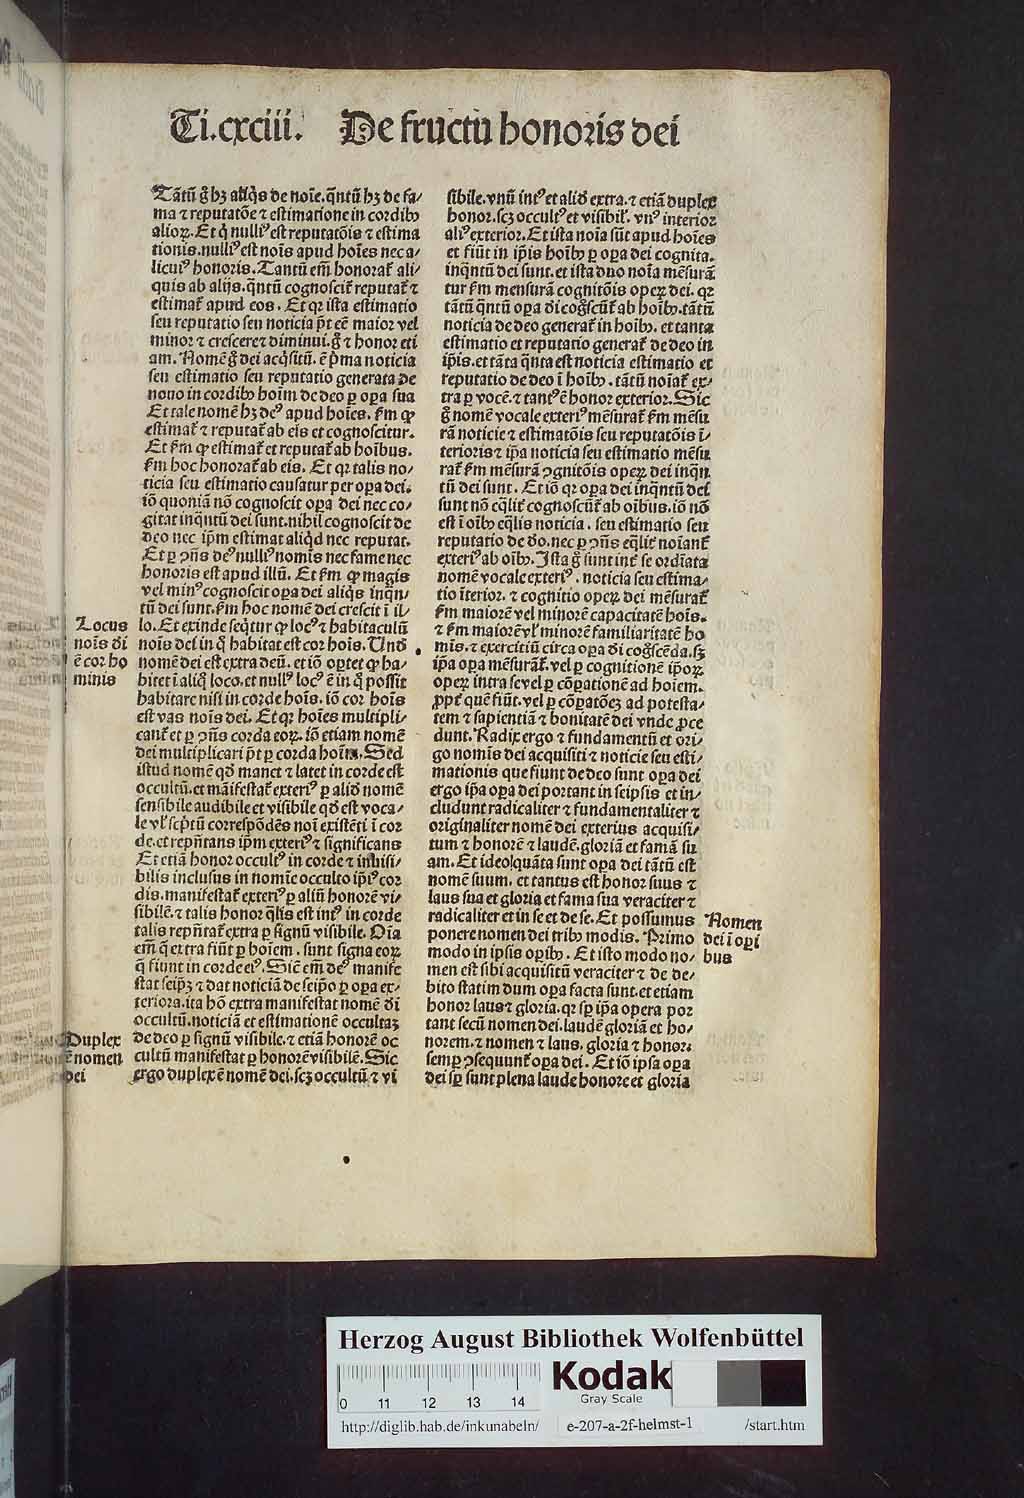 Ti.cxciii. De fructu honoris dei
Tãtũ g̃ hꝫ aliq̃s de noĩe.q̃ntũ hꝫ de fa/
ma ⁊ reputatõe ⁊ estimatione in cordibꝰ
alioꝝ. Et q̃ nulliꝰ est reputatõis ⁊ estima
tionis.nulliꝰ est noĩs apud hoĩes nec a/
licuiꝰ honoris. Tantũ em̃ honorat̃ ali/
quis ab alijs.q̃ntũ cognoscit̃ reputat̃ ⁊
estimat̃ apud eos. Et qꝛ ista estimatio
seu reputatio seu noticia p̃t eẽ maior vel
minor ⁊ crescere ⁊ diminui.g̃ ⁊ honor eti
am. Nomẽ g̃ dei acq̃sitũ. ẽ p̃ma noticia
seu estimatio seu reputatio generata de
nouo in cordibꝰ hoĩm de deo ꝑ oꝑa sua
Et tale nomẽ hꝫ deꝰ apud hoĩes. ẜm ꝙ
estimat̃ ⁊ reputat̃ ab eis et cognoscitur.
Et ẜm ꝙ estimat̃ et reputat̃ ab hoĩbus.
ẜm hoc honorat̃ ab eis. Et qꝛ talis no/
ticia seu estimatio causatur per oꝑa dei.
iõ quoniã nõ cognoscit oꝑa dei nec co/
gitat inq̃ntũ dei sunt.nihil cognoscit de
deo nec ip̃m estimat aliqd̃ nec reputat.
Et ꝑ ꝯñs deꝰ nulliꝰ nomĩs nec fame nec
honoris est apud illũ. Et ẜm ꝙ magis
vel minꝰ cognoscit oꝑa dei aliq̃s inq̃n/
tũ dei sunt.ẜm hoc nomẽ dei crescit ĩ il/
lo. Et exinde seq̃tur ꝙ locꝰ ⁊ habitaculũ
noĩs dei in q̃ habitat est cor hoĩs. Und̃
nomẽ dei est extra deũ. et iõ oꝑtet ꝙ ha/
bitet ĩ aliq̃ loco.et nullꝰ locꝰ ẽ in q̃ possit
habitare nisi in corde hoĩs. iõ cor hoĩs
est vas noĩs dei. Et qꝛ hoĩes multipli/
cant̃ et ꝑ ꝯñs corda eoꝝ. iõ etiam nomẽ
dei multiplicari p̃t ꝑ corda hoĩm. Sed
istud nomẽ qd̃ manet ⁊ latet in corde est
occultũ.et mãifestat̃ exteriꝰ ꝑ aliđ nomẽ
sensibile audibile et visibile qd̃ est voca/
le vl̃ scp̃tũ correspõdẽs noĩ existẽti ĩ cor
de.et rep̃ñtans ip̃m exteriꝰ ⁊ significans
Et etiã honor occultꝰ in corde ⁊ inuisi/
bilis inclusus in nomĩe occulto ip̃iꝰ cor
dis.manifestat̃ exteriꝰ ꝑ aliũ honorẽ vi/
sibilẽ.⁊ talis honor q̃lis est intꝰ in corde
talis rep̃ñtat̃ extra ꝑ signũ visibile. Oĩa
em̃ q̃ extra fiũt ꝑ hoĩem. sunt signa eoꝝ
q̃ fiunt in corde eiꝰ. Sic̃ em̃ deꝰ manife
stat seip̃ꝫ ⁊ dat noticiã de seip̃o ꝑ oꝑa ex/
teriora.ita hõ extra manifestat nomẽ di
occultũ.noticiã et estimationẽ occultaꝫ
de deo ꝑ signũ visibile.⁊ etiã honorẽ oc
cultũ manifestat ꝑ honorẽ visibilẽ. Sic
ergo duplex ẽ nomẽ dei.scꝫ occultũ ⁊ vi
sibile.vnũ intꝰ et aliđ extra.⁊ etiã duplex
honor.scꝫ occultꝰ et visibil̃. vnꝰ interior
aliꝰ exterior. Et ista noĩa sũt apud hoĩes
et fiũt in ip̃is hoĩbꝰ ꝑ oꝑa dei cognita.
inq̃ntũ dei sunt.et ista duo noĩa mẽsurã
tur ẜm mensurã cognitõis opeꝝ dei. qꝛ
tãtũ q̃ntũ oꝑa di cog̃scũt̃ ab hoĩbꝰ.tãtũ
noticia de deo generat̃ in hoĩbꝰ. et tanta
estimatio et reputatio generat̃ de deo in
ip̃is.et tãta q̃nta est noticia estimatio et
reputatio de deo ĩ hoĩbꝰ. tãtũ noĩat̃ ex/
tra ꝑ vocẽ.⁊ tantꝰ ẽ honor exterior. Sic
g̃ nomẽ vocale exteriꝰ mẽsurat̃ ẜm mẽsu
rã noticie ⁊ estimatõis seu reputatõis ĩ/
terioris ⁊ ip̃a noticia seu estimatio mẽsu
rat̃ ẜm mẽsurã ꝯgnitõis opeꝝ dei inq̃n
tũ dei sunt. Et iõ qꝛ oꝑa dei inq̃ntũ dei
sunt nõ eq̃lit̃ cognoscũt̃ ab oĩbus.iõ nõ
est ĩ oĩbꝰ eq̃lis noticia. seu estimatio seu
reputatio de do.nec ꝑ ꝯñs eq̃lit̃ noĩant̃
exteriꝰ ab oĩbꝰ. Ista g̃ sunt int̃ se ordĩata
nomẽ vocale exteriꝰ. noticia seu estima/
tio ĩterior. ⁊ cognitio opeꝝ dei mẽsurat̃
ẜm maiorẽ vel minorẽ capacitatẽ hoĩs.
⁊ ẜm maiorẽ vl̃ minorẽ familiaritatẽ ho
mĩs.⁊ exercitiũ circa oꝑa di cog̃scẽda.sꝫ
ip̃a oꝑa mẽsurãt̃. vel ꝑ cognitionẽ ip̃oꝝ
opeꝝ intra se vel ꝑ cõꝑationẽ ad hoĩem.
ꝓpt̃ quẽ fiũt.vel ꝑ cõꝑatõeꝫ ad potesta/
tem ⁊ sapientiã ⁊ bonitatẽ dei vnde ꝓce
dunt. Radix ergo ⁊ fundamentũ et ori/
go nomĩs dei acquisiti ⁊ noticie seu esti/
mationis que fiunt de deo sunt oꝑa dei
ergo ip̃a oꝑa dei portant in seipsis et in/
cludunt radicaliter ⁊ fundamentaliter ⁊
originaliter nomẽ dei exterius acquisi/
tum ⁊ honorẽ ⁊ laudẽ.gloriã et famã su
am. Et ideo quãta sunt oꝑa dei tãtũ est
nomẽ suum. et tantus est honor suus ⁊
laus sua et gloria et fama sua veraciter ⁊
radicaliter et in se et de se. Et possumus
ponere nomen dei tribꝰ modis. Primo
modo in ipsis oꝑibꝰ. Et isto modo no/
men est sibi acquisitũ veraciter ⁊ de de/
bito statim dum oꝑa facta sunt.et etiam
honor laus ⁊ gloria.qꝛ sꝑ ip̃a opera por
tant secũ nomen dei.laudẽ gloriã et ho/
norem.⁊ nomen ⁊ laus. gloria ⁊ honor
semꝑ ꝯsequunt̃ oꝑa dei. Et iõ ipsa oꝑa
dei sꝑ sunt plena laude honore et gloria
Locus
noĩs di
ẽ cor ho
minis
Duplex
ẽ nomen
dei
Nomen
dei ĩ oꝑi
bus
Herzog August Bibliothek Wolfenbüttel
Kodak
Gray Scale
0 11 12 13 14
http://diglib.hab.de/inkunabeln/ e-207-a-2f-helmst-1 /start.htm